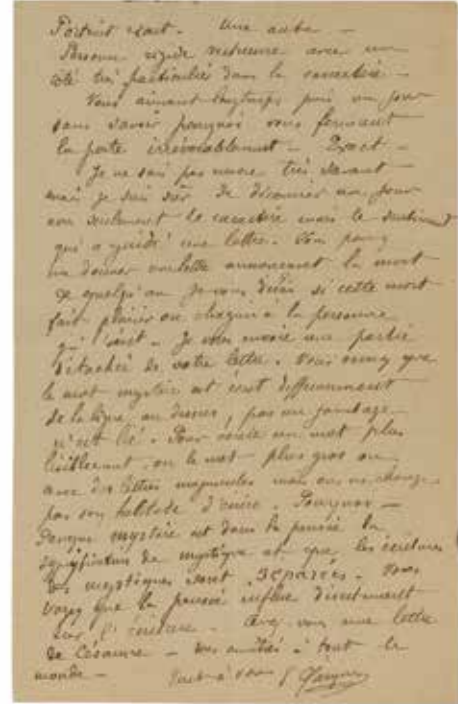 Portrait exact. Une autre —
Personne rigide vertueuse avec un
côté très particulier dans le caractère —
Vous aimant longtemps puis un jour
sans savoir pourquoi vous fermant
la porte irrévocablement — Exact —
Je ne suis pas encore très savant
mais je suis sûr de découvrir un jour
non seulement le caractère mais le sentiment
qui a guidé une lettre. Vous pouvez
me donner une lettre annonçant la mort
de quelqu'un je vous dirai si cette mort
fait plaisir ou chagrin à la personne
qui écrit. Je vous envoie une partie
détachée de votre lettre. Vous voyez que
le mot mystère est écrit différemment
de la ligne au dessus, pas un jambage
n'est lié. Pour écrire un mot plus
lisiblement on le met plus gros ou
avec des lettres majuscules mais on ne change
pas son habitude d'écrire. Pourquoi —
Parce que mystère est dans la pensée la
signification de mystique et que les écritures
des mystiques sont séparées. Vous
voyez que la pensée influe directement
sur l'écriture. Avez vous une lettre
de Césarine — mes amitiés à tout le
monde — tout à vous